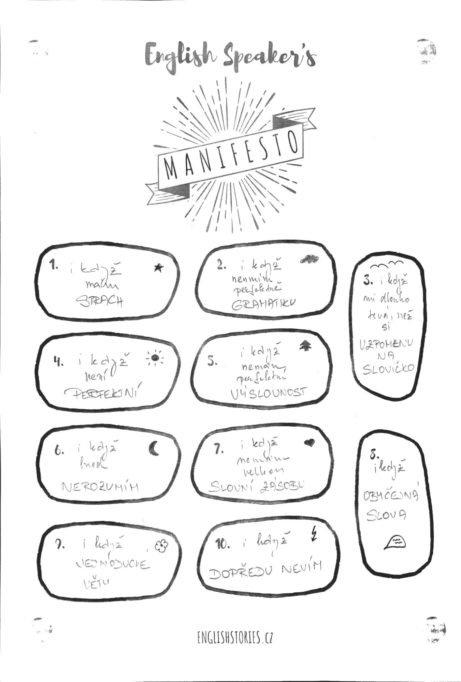 English Speaker's
MANIFESTO
1. i když
mám
STRACH
2. i když
nemám
perfektně
GRAMATIKU
3. i když
mi dlouho
trvá, než
si
VZPOMENU
NA
SLOVÍČKO
4. i když
není
PERFEKTNÍ
5. i když
nemám
perfektní
VÝSLOVNOST
6. i když
hned
NEROZUMÍM
7. i když
nemám
velkou
SLOVNÍ ZÁSOBU
8.
i když
OBYČEJNÁ
SLOVA
9. i když
JEDNODUCHÉ
VĚTY
10. i když
DOPŘEDU NEVÍM
ENGLISHSTORIES.CZ